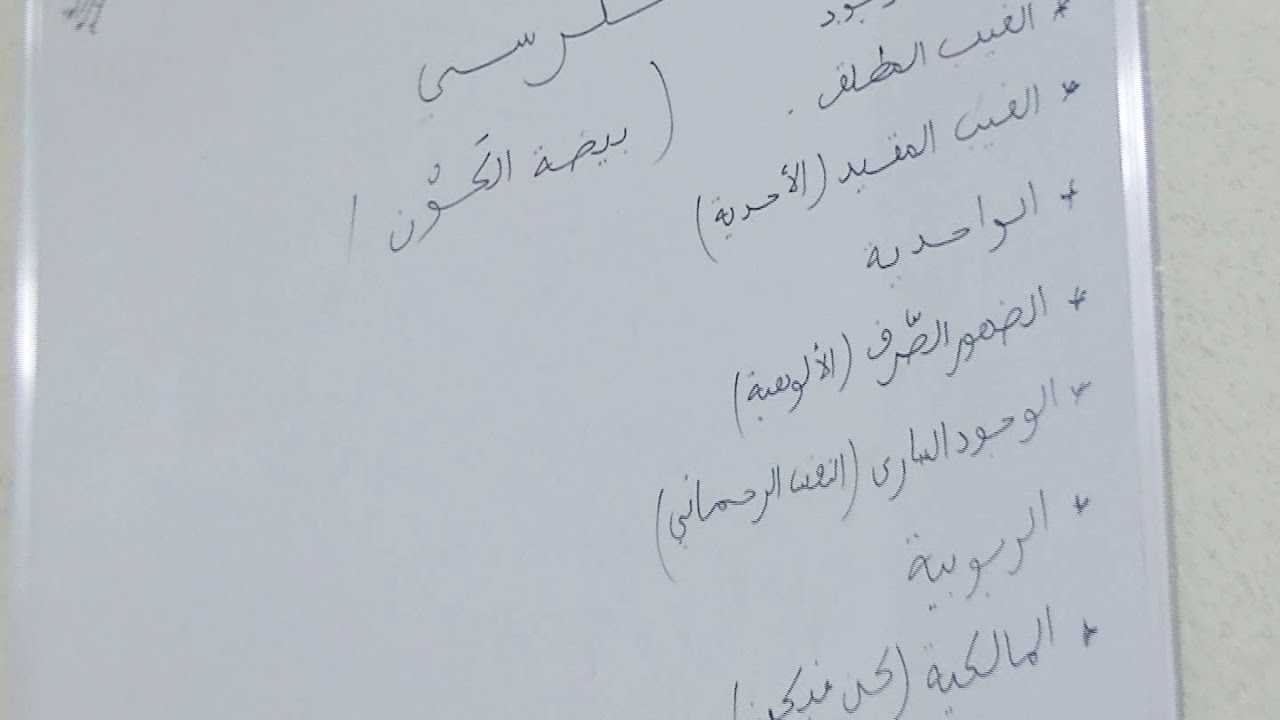 * الغيب المطلق .
* الغيب المقيد (الأحدية)
* الواحدية
* الضهور الصّرف (الألوهية)
* الوجود السارى (النفس الرحماني)
* الربوبية
* المالكية (كن
(بيضة الكَوْن)